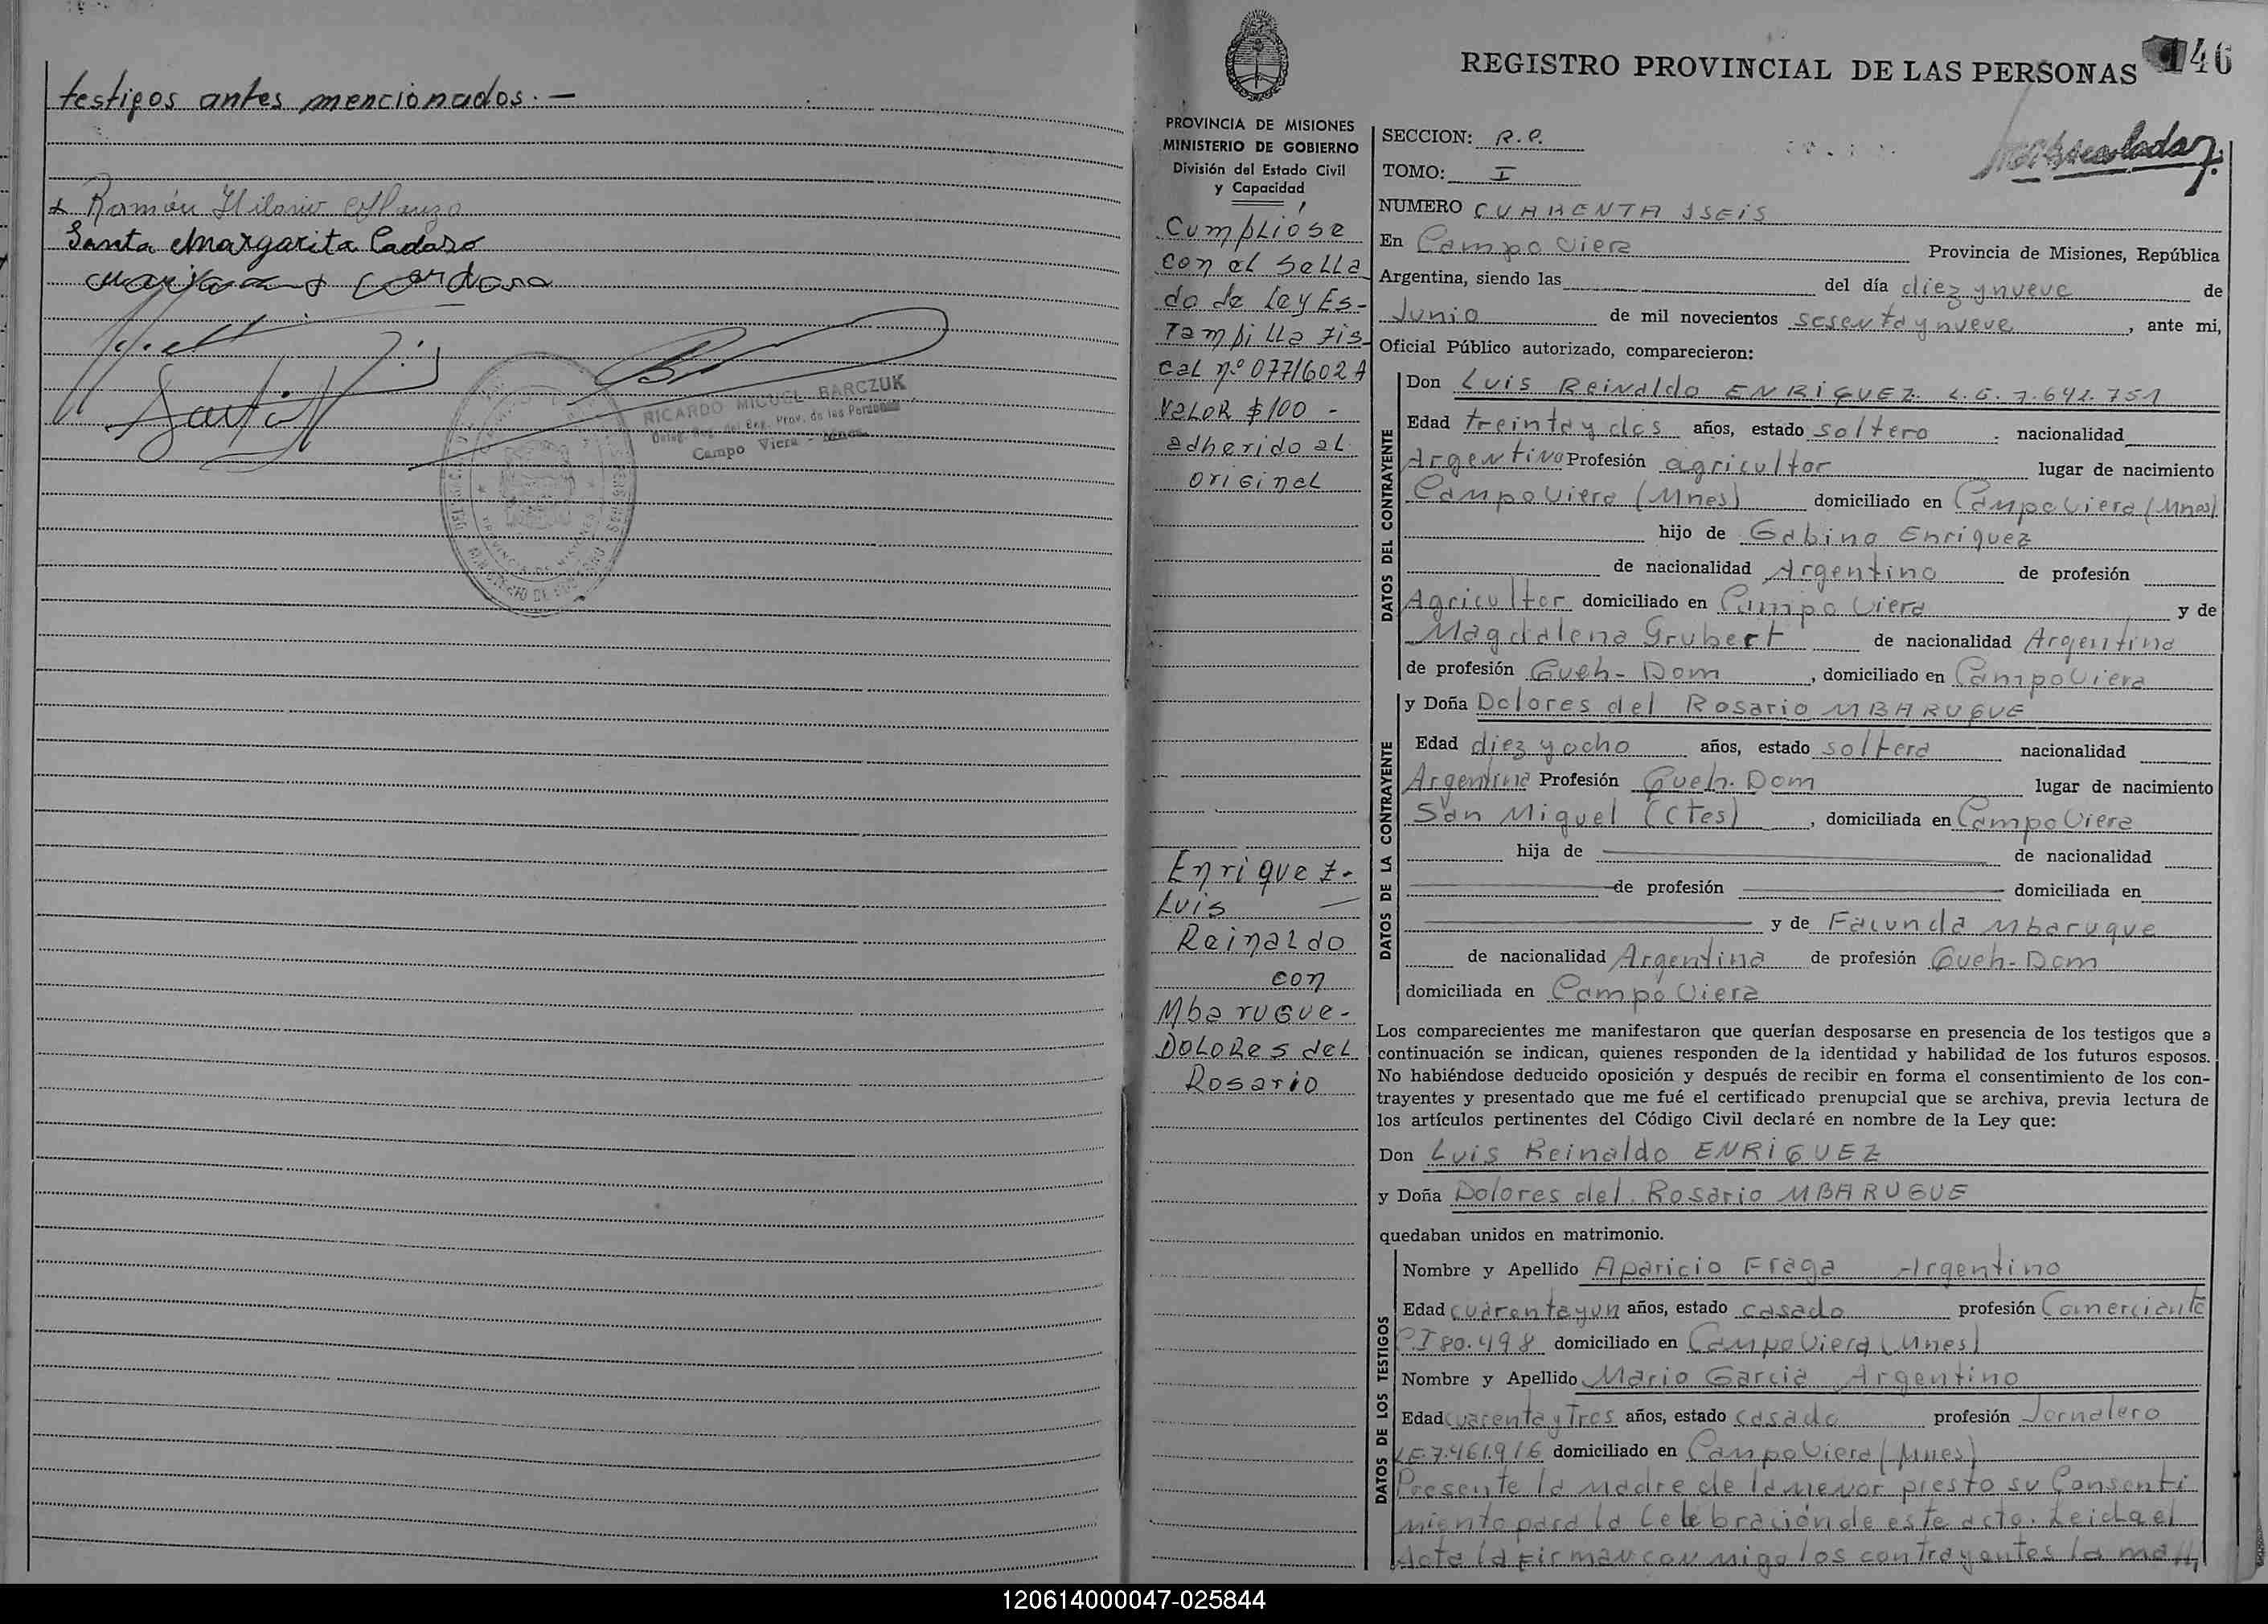 testigos antes mencionados.—
Ramón Hilario
Santa Margarita Cadozo
Cardoso
RICARDO MIGUEL BARCZUK
Deleg. Reg. del Reg. Prov. de las Personas
Campo Viera - Mnes.
PROVINCIA DE MISIONES
146
REGISTRO PROVINCIAL DE LAS PERSONAS
PROVINCIA DE MISIONES
MINISTERIO DE GOBIERNO
División del Estado Civil
y Capacidad
Cumplióse
con el sella
do de Ley Es-
tampilla fis
cal nº 0771602 A
Valor $100 -
adherido al
original
Enriquez-
Luis
Reinaldo
con
Mbarugue-
Dolores del
Rosario
SECCION: R.P.
TOMO: I
NUMERO CUARENTA Y SEIS
En Campo Viera Provincia de Misiones, República
Argentina, siendo las del día diez y nueve de
Junio de mil novecientos sesenta y nueve, ante mi,
Oficial Público autorizado, comparecieron:
DATOS DEL CONTRAYENTE
Don Luis Reinaldo ENRIQUEZ L.E. 7.642.751
Edad treinta y dos años, estado soltero. nacionalidad
Argentino Profesión agricultor lugar de nacimiento
Campo Viera (Mnes) domiciliado en Campo Viera (Mnes)
hijo de Gabino Enriquez
de nacionalidad Argentino de profesión
Agricultor domiciliado en Campo Viera y de
Magdalena Grubert de nacionalidad Argentina
de profesión Queh-Dom, domiciliado en Campo Viera
DATOS DE LA CONTRAYENTE
y Doña Dolores del Rosario MBARUGUE
Edad diez y ocho años, estado soltera nacionalidad
Argentina Profesión Queh. Dom lugar de nacimiento
San Miguel (Ctes), domiciliada en Campo Viera
hija de de nacionalidad
de profesión domiciliada en
y de Facunda Mbaruque
de nacionalidad Argentina de profesión Queh-Dom
domiciliada en Campo Viera
Los comparecientes me manifestaron que querían desposarse en presencia de los testigos que a
continuación se indican, quienes responden de la identidad y habilidad de los futuros esposos.
No habiéndose deducido oposición y después de recibir en forma el consentimiento de los con-
trayentes y presentado que me fué el certificado prenupcial que se archiva, previa lectura de
los artículos pertinentes del Código Civil declaré en nombre de la Ley que:
Don Luis Reinaldo ENRIGUEZ
y Doña Dolores del Rosario MBARUGUE
quedaban unidos en matrimonio.
DATOS DE LOS TESTIGOS
Nombre y Apellido Aparicio Fraga Argentino
Edad cuarenta y un años, estado casado profesión Comerciante
C I 80.498 domiciliado en Campo Viera (Mnes)
Nombre y Apellido Mario Garcia Argentino
Edad cuarenta y tres años, estado casado profesión Jornalero
LE 7.461.916 domiciliado en Campo Viera (Mnes)
Presente la madre de la menor presto su Consenti
miento para la Celebración de este acto. Leida el
Acta la Firman conmigo los contrayentes la ma
120614000047-025844